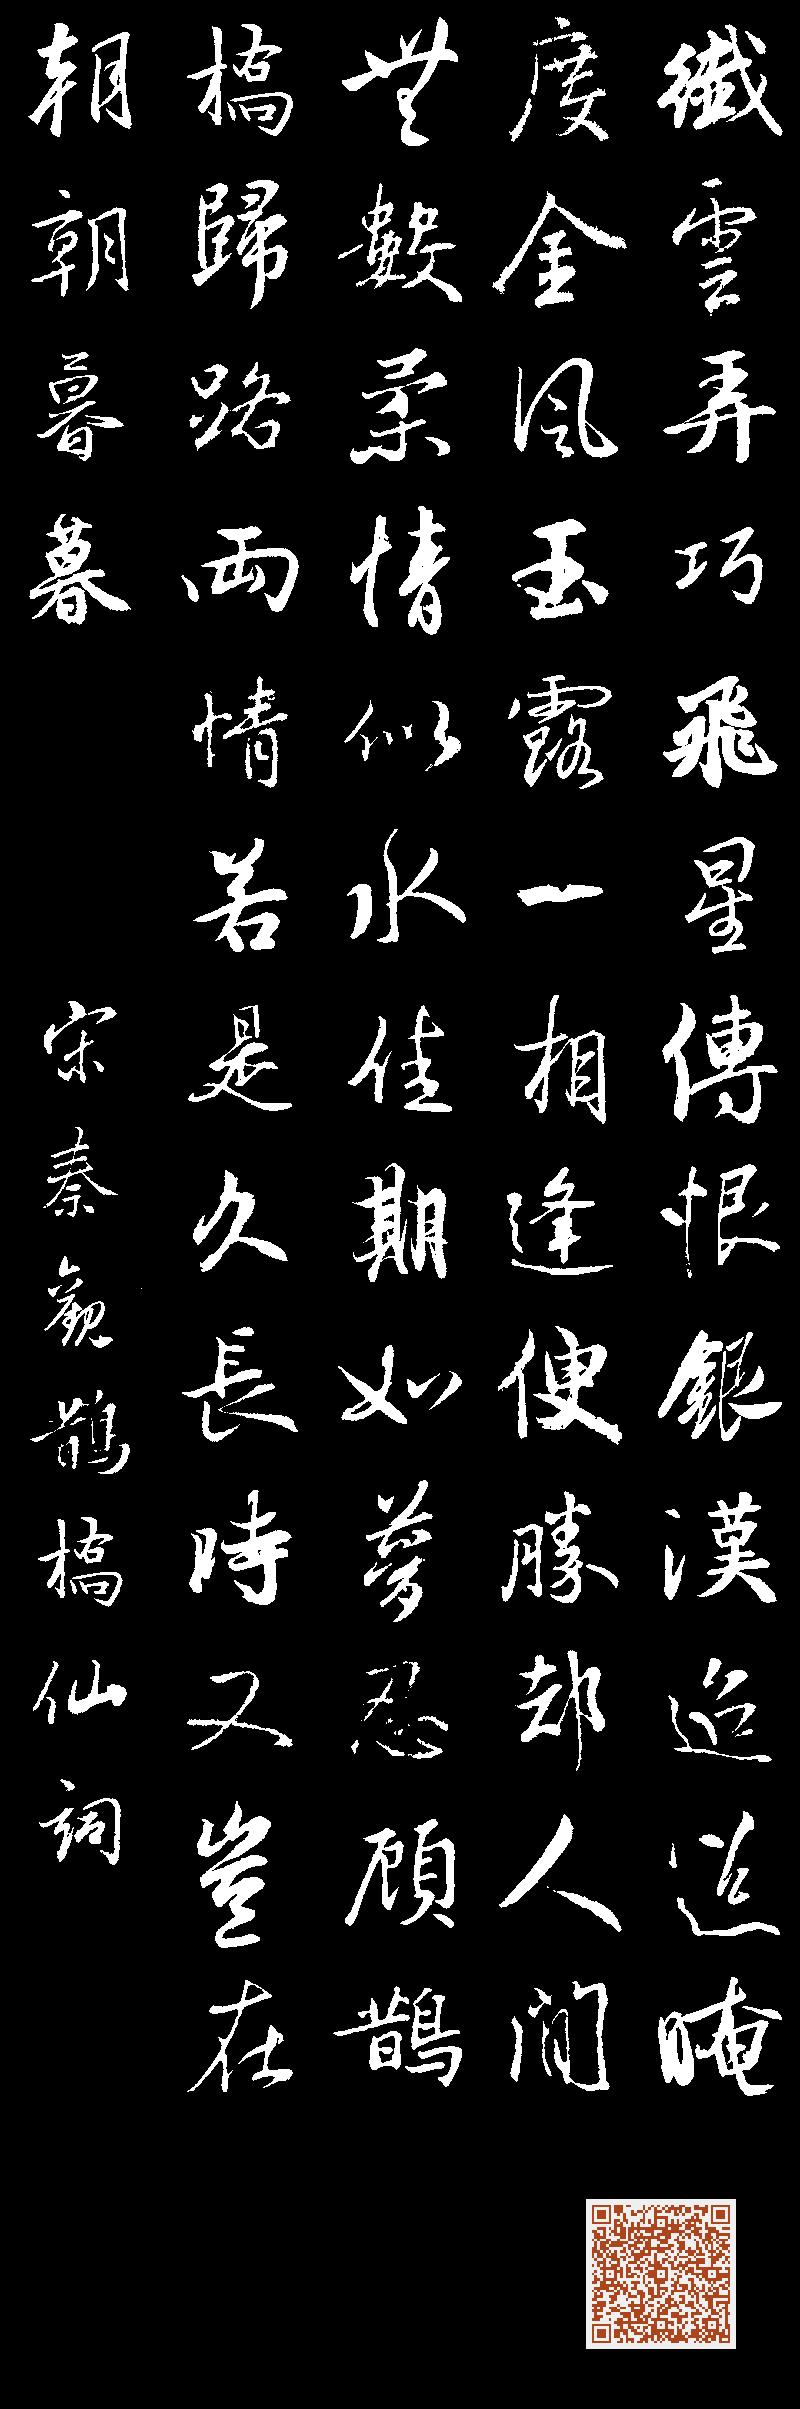 纖雲弄巧飛星傳恨銀漢迢迢晻
度金風玉露一相逢便勝却人間
無數柔情似水佳期如夢忍顧鵲
橋歸路兩情若是久長時又豈在
朝朝暮暮
宋秦觀鵲橋仙詞